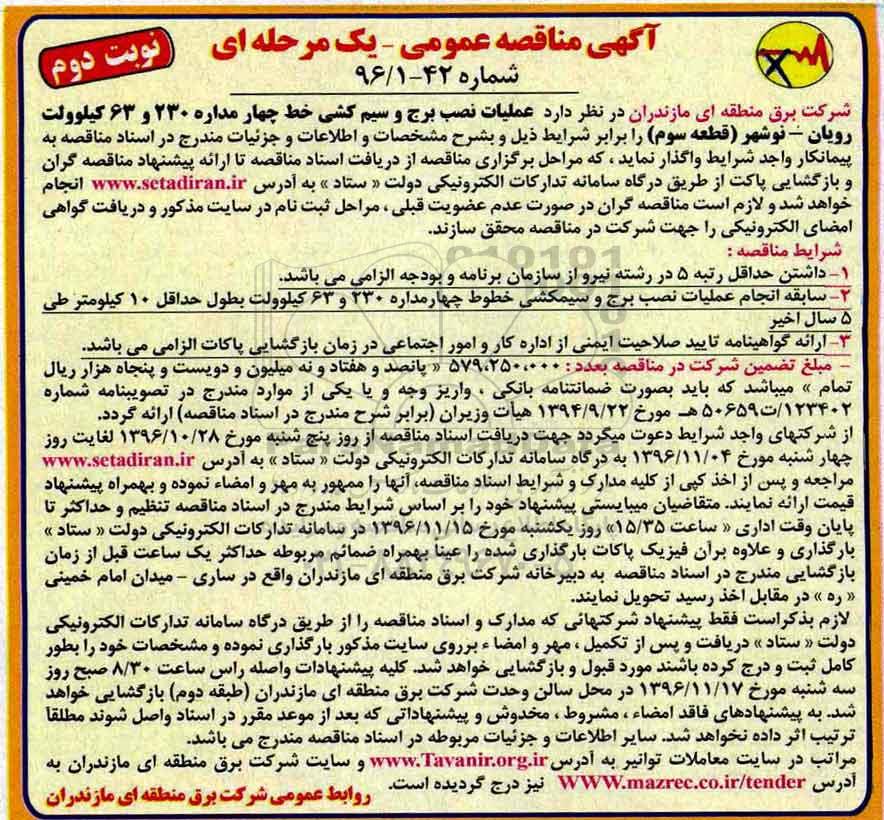 آگهی مناقصه عمومی - یک مرحله ای
نوبت دوم
شماره ۴۲-۹۶/۱
شرکت برق منطقه ای مازندران در نظر دارد عملیات نصب برج و سیم کشی خط چهار مداره ۲۳۰ و ۶۳ کیلوولت
رویان – نوشهر (قطعه سوم) را برابر شرایط ذیل و بشرح مشخصات و اطلاعات و جزئیات مندرج در اسناد مناقصه به
پیمانکار واجد شرایط واگذار نماید ، که مراحل برگزاری مناقصه از دریافت اسناد مناقصه تا ارائه پیشنهاد مناقصه گران
و بازگشایی پاکت از طریق درگاه سامانه تدارکات الکترونیکی دولت « ستاد » به آدرس www.setadiran.ir انجام
خواهد شد و لازم است مناقصه گران در صورت عدم عضویت قبلی ، مراحل ثبت نام در سایت مذکور و دریافت گواهی
امضای الکترونیکی را جهت شرکت در مناقصه محقق سازند.
شرایط مناقصه :
۱- داشتن حداقل رتبه ۵ در رشته نیرو از سازمان برنامه و بودجه الزامی می باشد.
۲- سابقه انجام عملیات نصب برج و سیمکشی خطوط چهارمداره ۲۳۰ و ۶۳ کیلوولت بطول حداقل ۱۰ کیلومتر طی
۵ سال اخیر
۳- ارائه گواهینامه تایید صلاحیت ایمنی از اداره کار و امور اجتماعی در زمان بازگشایی پاکات الزامی می باشد.
- مبلغ تضمین شرکت در مناقصه بعدد : ۵۷۹،۲۵۰،۰۰۰ « پانصد و هفتاد و نه میلیون و دویست و پنجاه هزار ریال
تمام » میباشد که باید بصورت ضمانتنامه بانکی ، واریز وجه و یا یکی از موارد مندرج در تصویبنامه شماره
۱۲۳۴۰۲/ت۵۰۶۵۹ هـ مورخ ۱۳۹۴/۹/۲۲ هیأت وزیران (برابر شرح مندرج در اسناد مناقصه) ارائه گردد.
از شرکتهای واجد شرایط دعوت میگردد جهت دریافت اسناد مناقصه از روز پنج شنبه مورخ ۱۳۹۶/۱۰/۲۸ لغایت روز
چهار شنبه مورخ ۱۳۹۶/۱۱/۰۴ به درگاه سامانه تدارکات الکترونیکی دولت « ستاد » به آدرس www.setadiran.ir
مراجعه و پس از اخذ کپی از کلیه مدارک و شرایط اسناد مناقصه، آنها را ممهور به مهر و امضاء نموده و بهمراه پیشنهاد
قیمت ارائه نمایند. متقاضیان میبایستی پیشنهاد خود را بر اساس شرایط مندرج در اسناد مناقصه تنظیم و حداکثر تا
پایان وقت اداری « ساعت ۱۵/۳۵» روز یکشنبه مورخ ۱۳۹۶/۱۱/۱۵ در سامانه تدارکات الکترونیکی دولت « ستاد »
بارگذاری و علاوه برآن فیزیک پاکات بارگذاری شده را عینا بهمراه ضمائم مربوطه حداکثر یک ساعت قبل از زمان
بازگشایی مندرج در اسناد مناقصه به دبیرخانه شرکت برق منطقه ای مازندران واقع در ساری - میدان امام خمینی
« ره » در مقابل اخذ رسید تحویل نمایند.
لازم بذکراست فقط پیشنهاد شرکتهائی که مدارک و اسناد مناقصه را از طریق درگاه سامانه تدارکات الکترونیکی
دولت « ستاد » دریافت و پس از تکمیل ، مهر و امضا ء برروی سایت مذکور بارگذاری نموده و مشخصات خود را بطور
کامل ثبت و درج کرده باشند مورد قبول و بازگشایی خواهد شد. کلیه پیشنهادات واصله راس ساعت ۸/۳۰ صبح روز
سه شنبه مورخ ۱۳۹۶/۱۱/۱۷ در محل سالن وحدت شرکت برق منطقه ای مازندران (طبقه دوم) بازگشایی خواهد
شد. به پیشنهادهای فاقد امضاء ، مشروط ، مخدوش و پیشنهاداتی که بعد از موعد مقرر در اسناد واصل شوند مطلقاً
ترتیب اثر داده نخواهد شد. سایر اطلاعات و جزئیات مربوطه در اسناد مناقصه مندرج می باشد.
مراتب در سایت معاملات توانیر به آدرس www.Tavanir.org.ir و سایت شرکت برق منطقه ای مازندران به
آدرس WWW.mazrec.co.ir/tender نیز درج گردیده است.
روابط عمومی شرکت برق منطقه ای مازندران